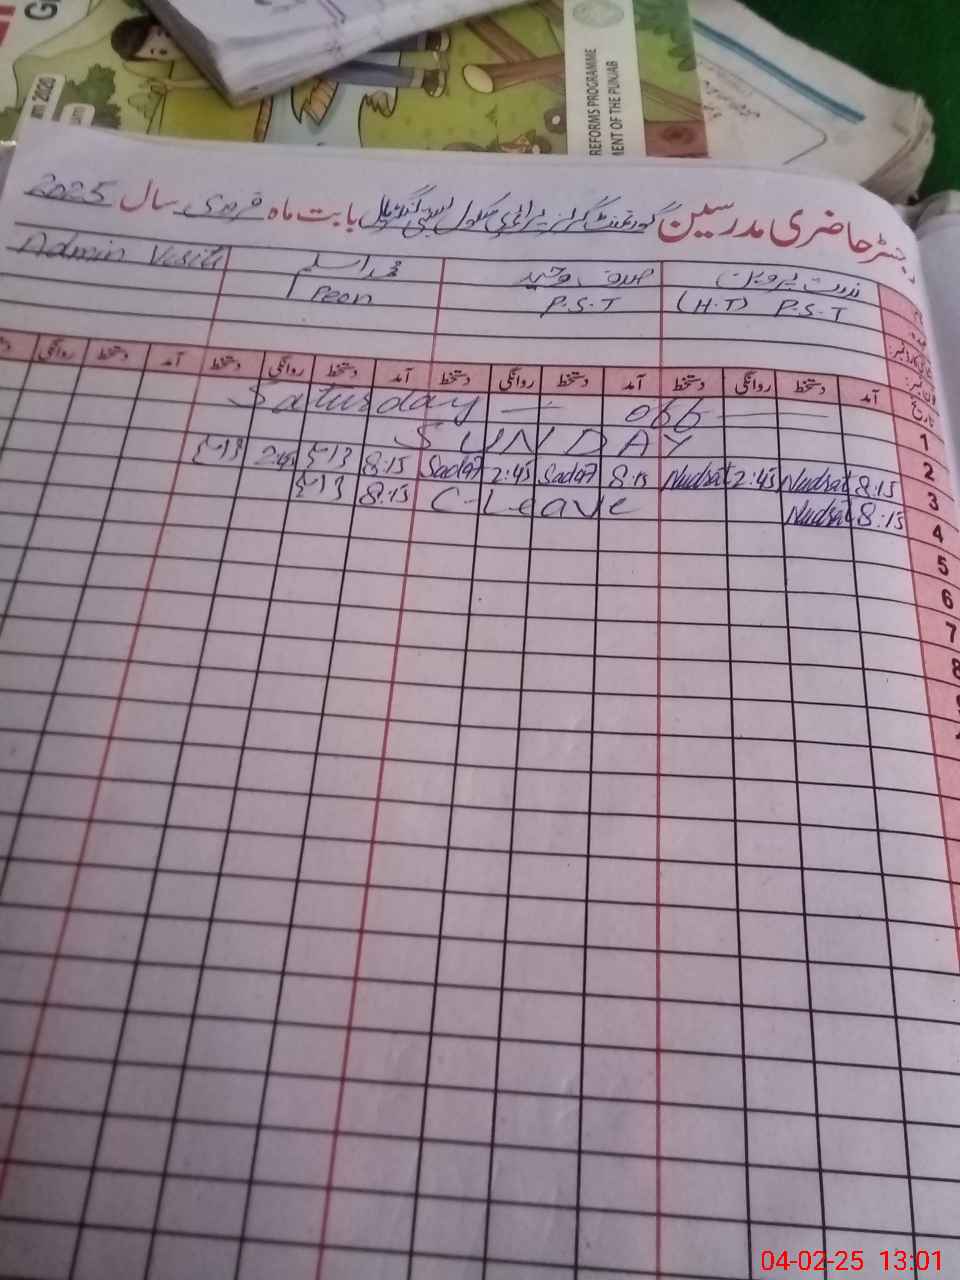 REFORMS PROGRAMME
MENT OF THE PUNJAB
2020
رجسٹر حاضری مدرسین گورنمنٹ گرلز پرائمری سکول بابت ماہ فروری سال 2025
ندرت پروین صدف وحید محمد اسلم Admin Visit
(H.T) P.S.T P.S.T Peon
آمد دستخط روانگی دستخط آمد دستخط روانگی دستخط آمد دستخط روانگی دستخط آمد دستخط روانگی
تاریخ
1 Saturday — off —
2 SUNDAY
3 8:15 Nudrat 2:45 Nudrat 8:15 Sadaf 2:45 Sadaf 8:15 2:45
4 8:15 Nudrat C-Leave 8:15
5
6
7
8
04-02-25 13:01